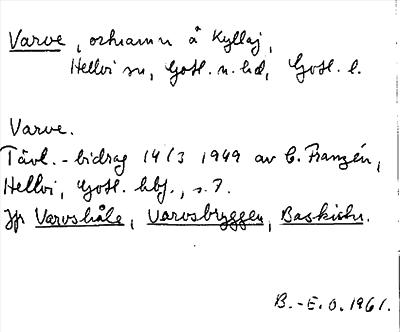 Varve, ortnamn å Kyllaj,
Hellvi sn, Gotl. n. hd, Gotl. l.
Varve.
Tävl.-bidrag 14/3 1949 av C. Franzén,
Hellvi, Gotl. hbf., s. 7.
Jfr Varvshåle, Varvsbryggen,
B.-E.O. 1961.